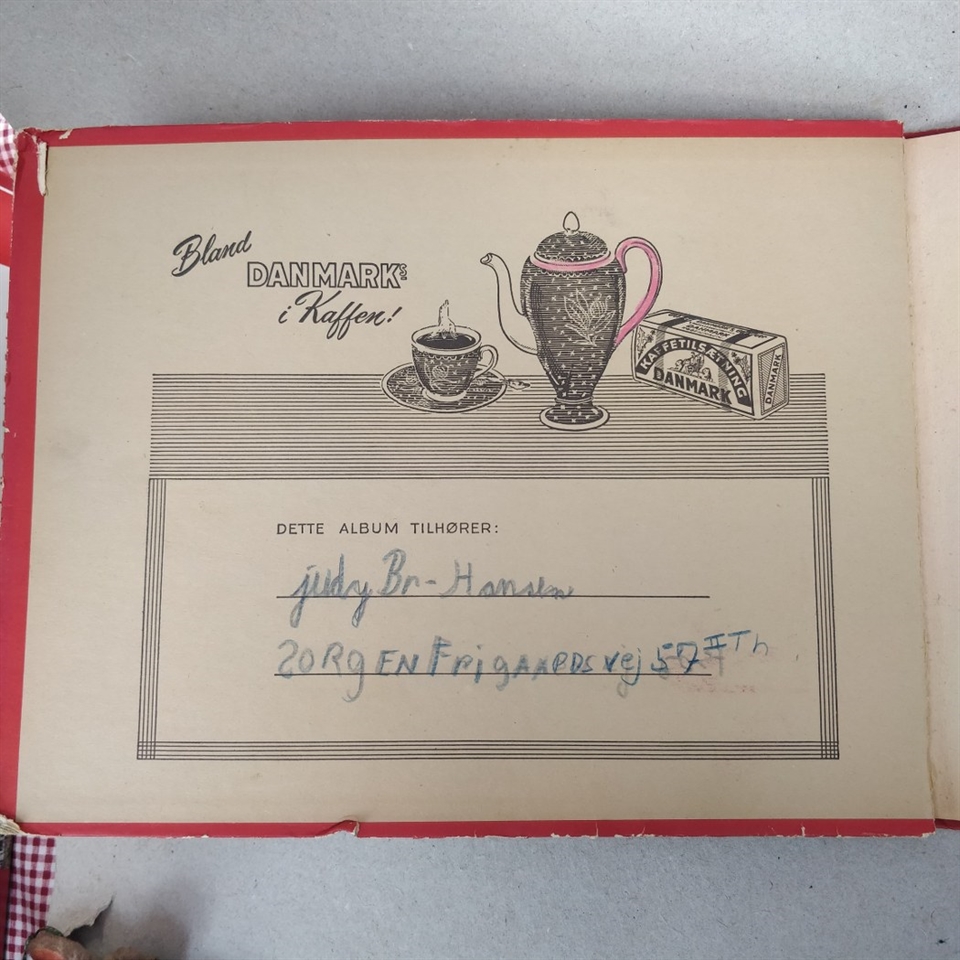 Bland
DANMARKS
i Kaffen!
KAFFETILSÆTNING
DANMARK
DANMARK
DETTE ALBUM TILHØRER:
judy Br-Hansen
ZORgEN FRigAARDS vej 57 II Th